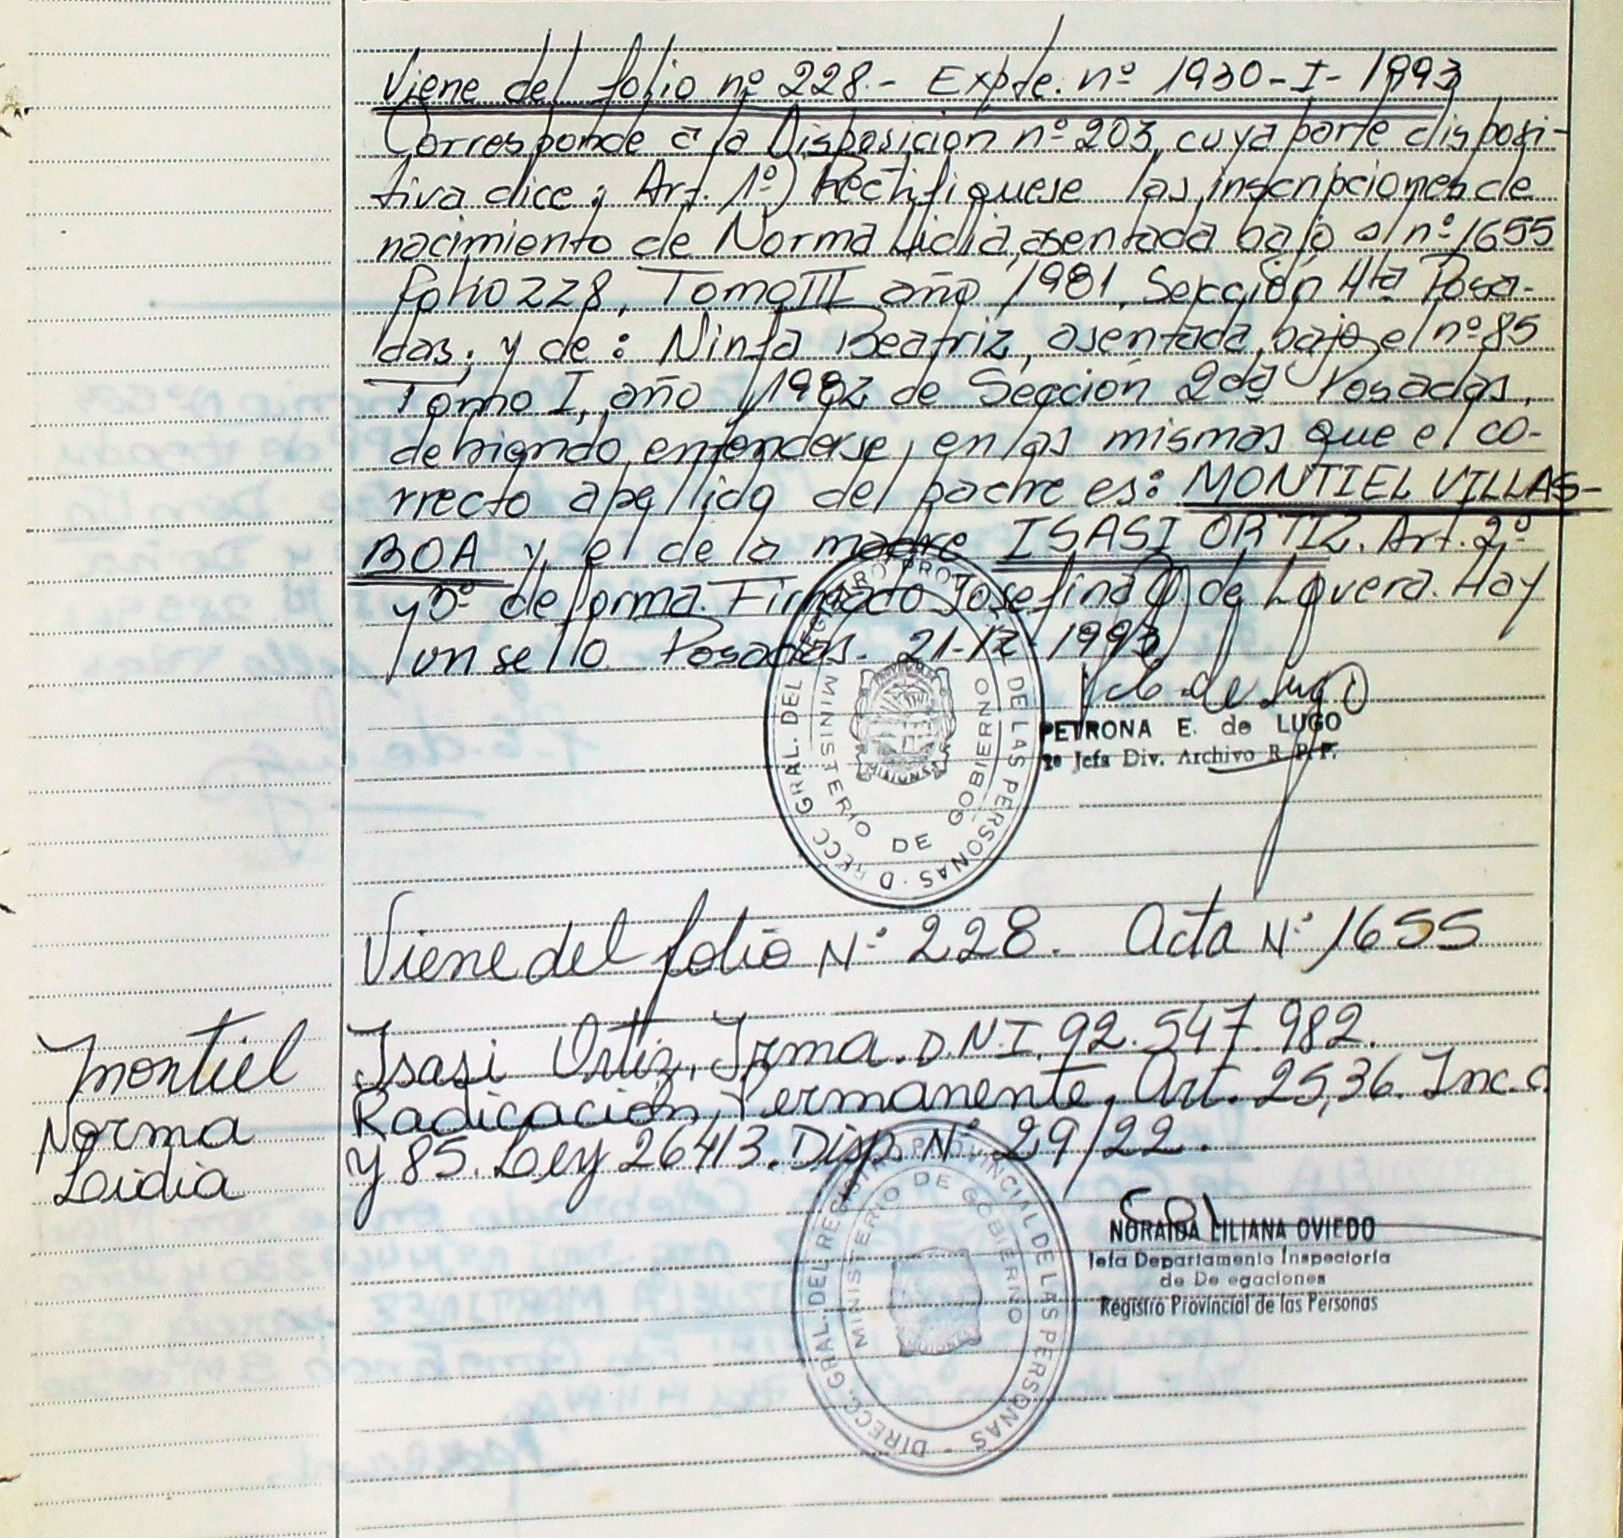 Viene del folio nº 228.- Expte. nº 1930-I-1993
Corresponde a la Disposición nº 203, cuya parte disposi-
tiva dice: Art. 1º) Rectifiquese las inscripciones de
nacimiento de Norma Lidia, asentada bajo el nº 1655
folio 228, Tomo III año 1981, Sección 4ta Posa-
das, y de: Ninfa Beatriz, asentada bajo el nº 85
Tomo I, año 1982 de Sección 2da Posadas,
debiendo entenderse, en las mismas que el co-
rrecto apellido del padre es: MONTIEL VILLAS-
BOA y el de la madre ISASI ORTIZ. Art. 2º
y 3º de forma. Firmado Josefina de Lovera. Hay
un sello Posadas. 21-12-1993
P.E. de Lugo
PETRONA E. de LUGO
Jefa Div. Archivo R.P.P.
DIRECC. GRAL. DEL REGISTRO PROV. DE LAS PERSONAS
MINISTERIO DE GOBIERNO
MISIONES
Viene del folio Nº 228. Acta Nº 1655
Montiel
Norma
Lidia
Isasi Ortiz, Irma. D.N.I. 92.547.982.
Radicación Permanente, Art. 25,36. Inc. c
y 85. Ley 26413. Disp. Nº 29/22.
DIRECC. GRAL. DEL REGISTRO PROVINCIAL DE LAS PERSONAS
MINISTERIO DE GOBIERNO
NORAIDA LILIANA OVIEDO
Jefa Departamento Inspectoria
de De egaciones
Registro Provincial de las Personas